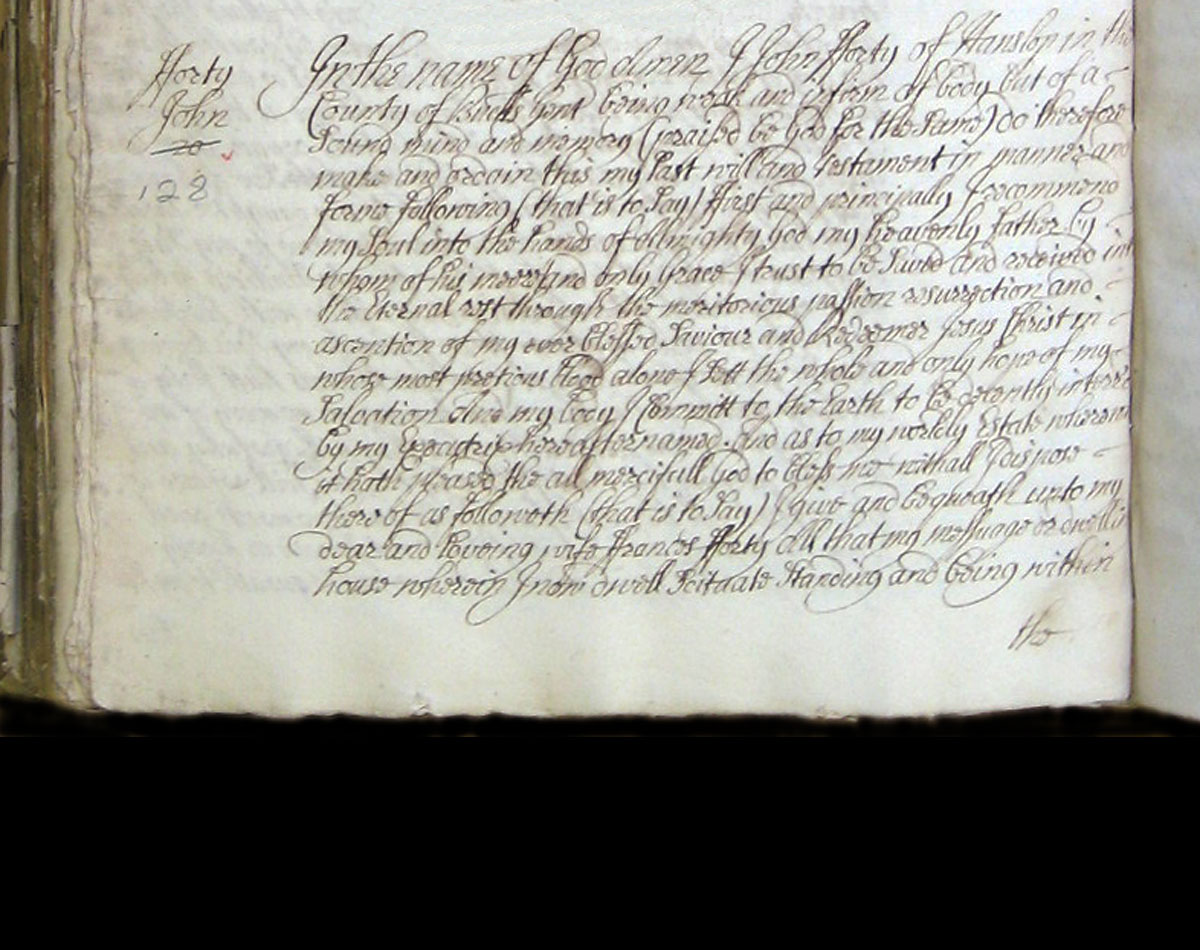 Fforty
John
20
128
In the name of God Amen I John Fforty of Hanslop in the
County of Bucks Gent being weak and infirm of body but of a
Sound mind and memory (praised be God for the Same) do therefore
make and ordain this my last will and Testament in manner and
forme following (that is to Say) ffirst and principally I recommend
my Soul into the hands of Allmighty God my heavenly father by
whom of his meer and only Grace I trust to be Saved and received into
the Eternal rest through the meritorious passion resurrection and
ascention of my ever blessed Saviour and Redeemer Jesus Christ in
whose most pretious blood alone I Sett the whole and only hope of my
Salvation And my body I Committ to the Earth to be decently interr'd
by my Executrix hereafter named. And as to my worldly Estate wherewith
it hath pleased the all mercifull God to bless me withall I dispose
thereof as followeth (that is to Say) I give and bequeath unto my
dear and Loveing wife Frances Fforty All that my messuage or dwelling
house wherein I now dwell Scituate Standing and being within
the